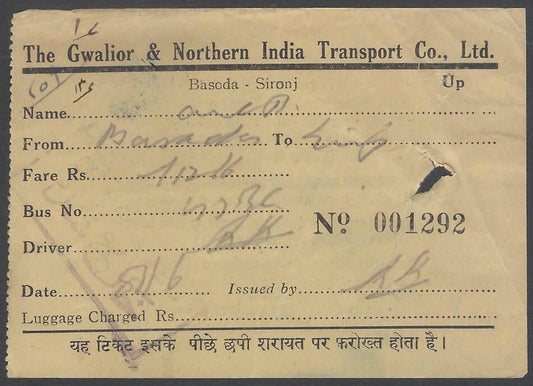 The Gwalior & Northern India Transport Co., Ltd.
Basoda - Sironj Up
Name
From Basoda To
Fare Rs.
Bus No
Nº 001292
Driver RK
Date Issued by RK
Luggage Charged Rs.
यह टिकट इसके पीछे छपी शरायत पर फ़रोख्त होता है।